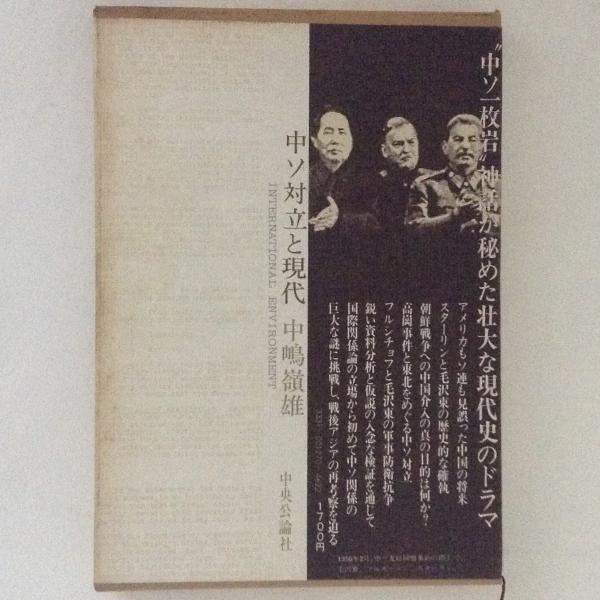 "中ソ一枚岩"神話が秘めた壮大な現代史のドラマ
アメリカもソ連も見誤った中国の将来
スターリンと毛沢東の歴史的な確執
朝鮮戦争への中国介入の真の目的は何か?
高崗事件と東北をめぐる中ソ対立
フルシチョフと毛沢東の軍事防衛抗争
鋭い資料分析と仮説の入念な検証を通して
国際関係論の立場から初めて中ソ関係の
巨大な謎に挑戦し、戦後アジアの再考察を迫る
1700円
中ソ対立と現代 中嶋嶺雄
INTERNATIONAL ENVIRONMENT
中央公論社